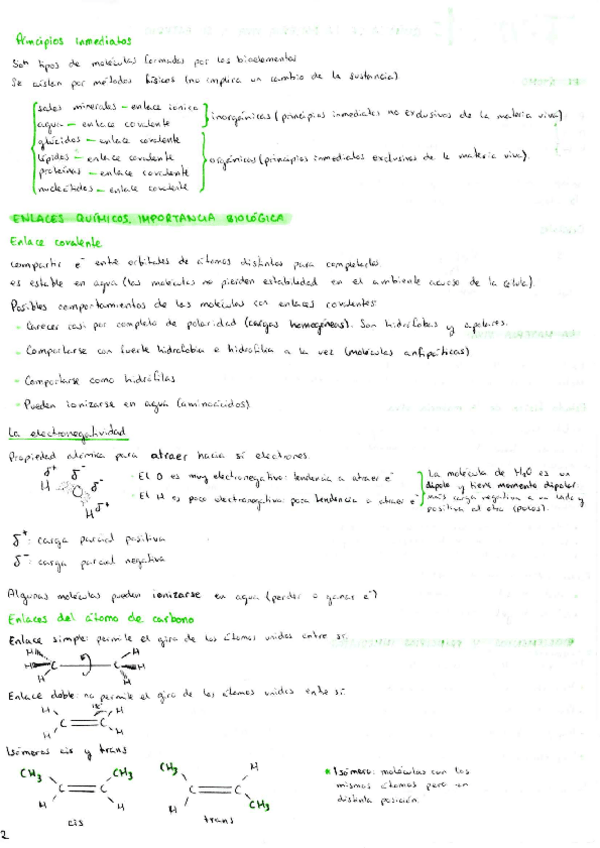 Principios inmediatos
Son tipos de moléculas formadas por los bioelementos
Se aíslan por métodos físicos (no implica un cambio de la sustancia)
sales minerales - enlace ionico
agua - enlace covalente
inorgánicas (principios inmediatos no exclusivos de la materia viva)
glúcidos - enlace covalente
lípidos - enlace covalente
proteínas - enlace covalente
nucleótidos - enlace covalente
orgánicas (principios inmediatos exclusivos de la materia viva).
ENLACES QUÍMICOS. IMPORTANCIA BIOLÓGICA
Enlace covalente
compartir e⁻ entre orbitales de átomos distintos para completarlos.
es estable en agua (las moléculas no pierden estabilidad en el ambiente acuoso de la célula).
Posibles comportamientos de las moléculas con enlaces covalentes:
- Carecer casi por completo de polaridad (cargas homogéneas). Son hidrófobas y apolares.
- Comportarse con fuerte hidrofobia e hidrofilia a la vez (moléculas anfipáticas)
- Comportarse como hidrófilas
- Pueden ionizarse en agua (aminoácidos)
La electronegatividad
Propiedad atómica para atraer hacia sí electrones.
δ⁺ δ⁻
H O δ⁻
H δ⁺
- El O es muy electronegativo: tendencia a atraer e⁻
- El H es poco electronegativo: poca tendencia a atraer e⁻
La molécula de H₂O es un
dipolo y tiene momento dipolar:
más carga negativa a un lado y
positiva al otro (polos).
δ⁺: carga parcial positiva
δ⁻: carga parcial negativa
Algunas moléculas pueden ionizarse en agua (perder o ganar e⁻)
Enlaces del átomo de carbono
Enlace simple: permite el giro de los átomos unidos entre sí.
H H
H C C H
H H
Enlace doble: no permite el giro de los átomos unidos entre sí
H H
C C
H H
Isómeros cis y trans
CH₃ CH₃
C C
H H
cis
CH₃ H
C C
H CH₃
trans
Isómero: moléculas con los
mismos átomos pero en
distinta posición.
2